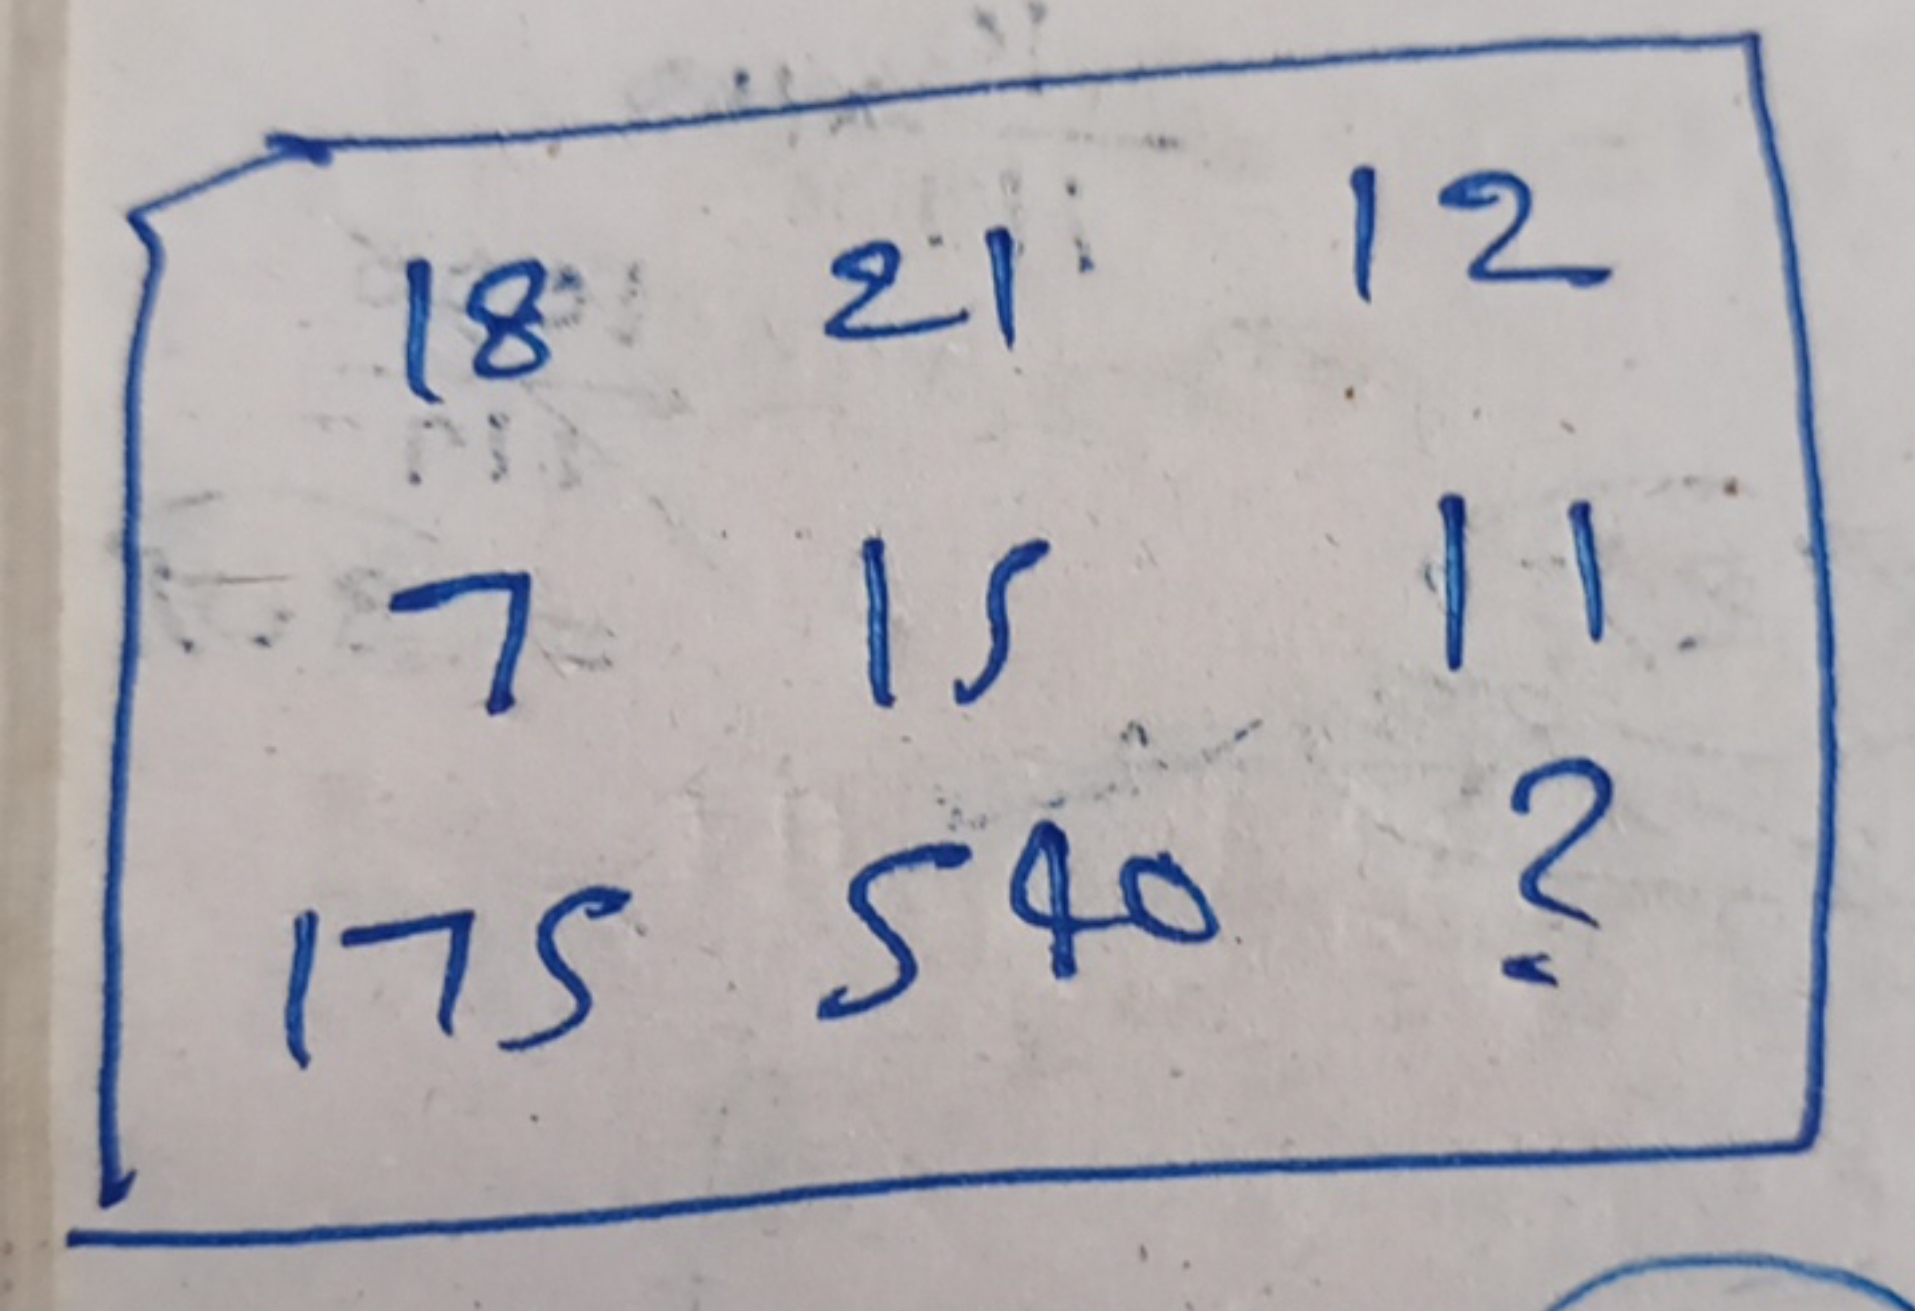 18 21 12
7 15 11
175 540 ?